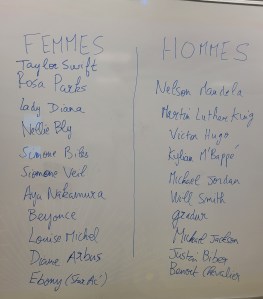 FEMMES
Taylor Swift
Rosa Parks
Lady Diana
Nellie Bly
Simone Biles
Simone Veil
Aya Nakamura
Beyonce
Louise Michel
Diane Arbus
Ebony
HOMMES
Nelson Mandela
Martin Luther King
Victor Hugo
Kylian M'Bappé
Michael Jordan
Will Smith
Gradur
Michael Jackson
Justin Biber
Benoit Chevalier